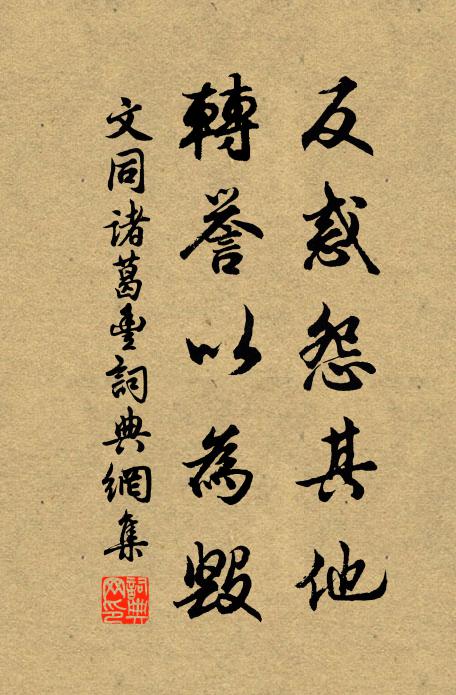 反惑怨其他
轉誉以為毀
文同諸葛豊詞典網集
詞典網印